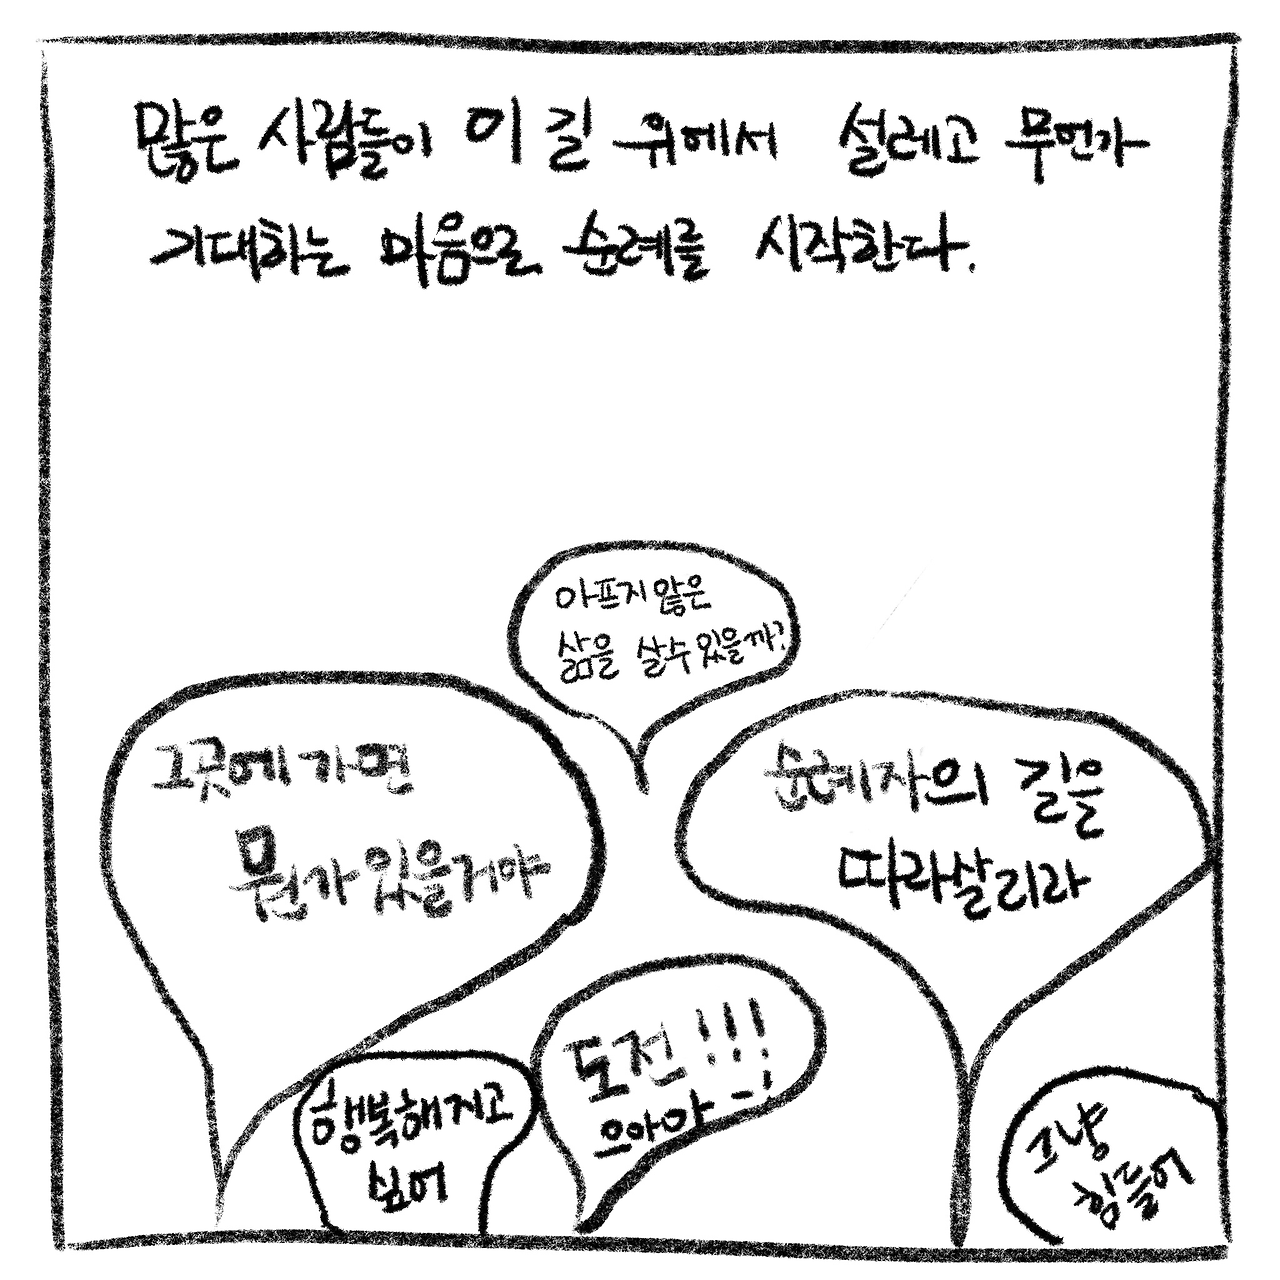 많은 사람들이 이 길 위에서 설레고 무언가
기대하는 마음으로 순례를 시작한다.
아프지 않은
삶을 살 수 있을까?
그곳에 가면
뭔가 있을거야
순례자의 길을
따라 살리라
도전!!!
으아아-!
행복해지고
싶어
그냥
힘들어